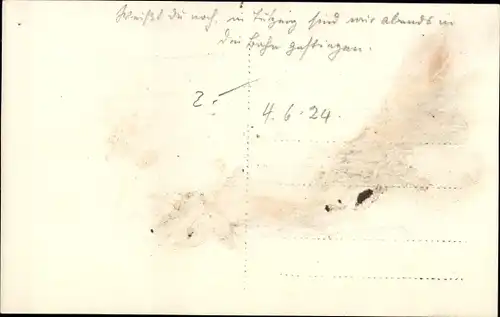 Weißt du noch, in Tutzing sind wir abends in
die Bahn gestiegen.
2.
4.6.24